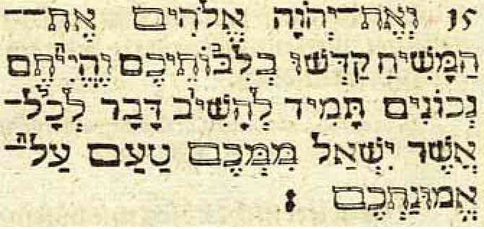 15 וְאֶת־יְהֹוָה אֱלֹהִים אֶת־
הַמָּשִׁיחַ קַדְּשׁוּ בְּלִבּוֹתֵיכֶם וֶהֱיִיתֶם
נְכוֹנִים תָּמִיד לְהָשִׁיב דָּבָר לְכָל־
אֲשֶׁר יִשְׁאַל מִמְּכֶם טַעַם עַל־
אֱמוּנַתְכֶם׃